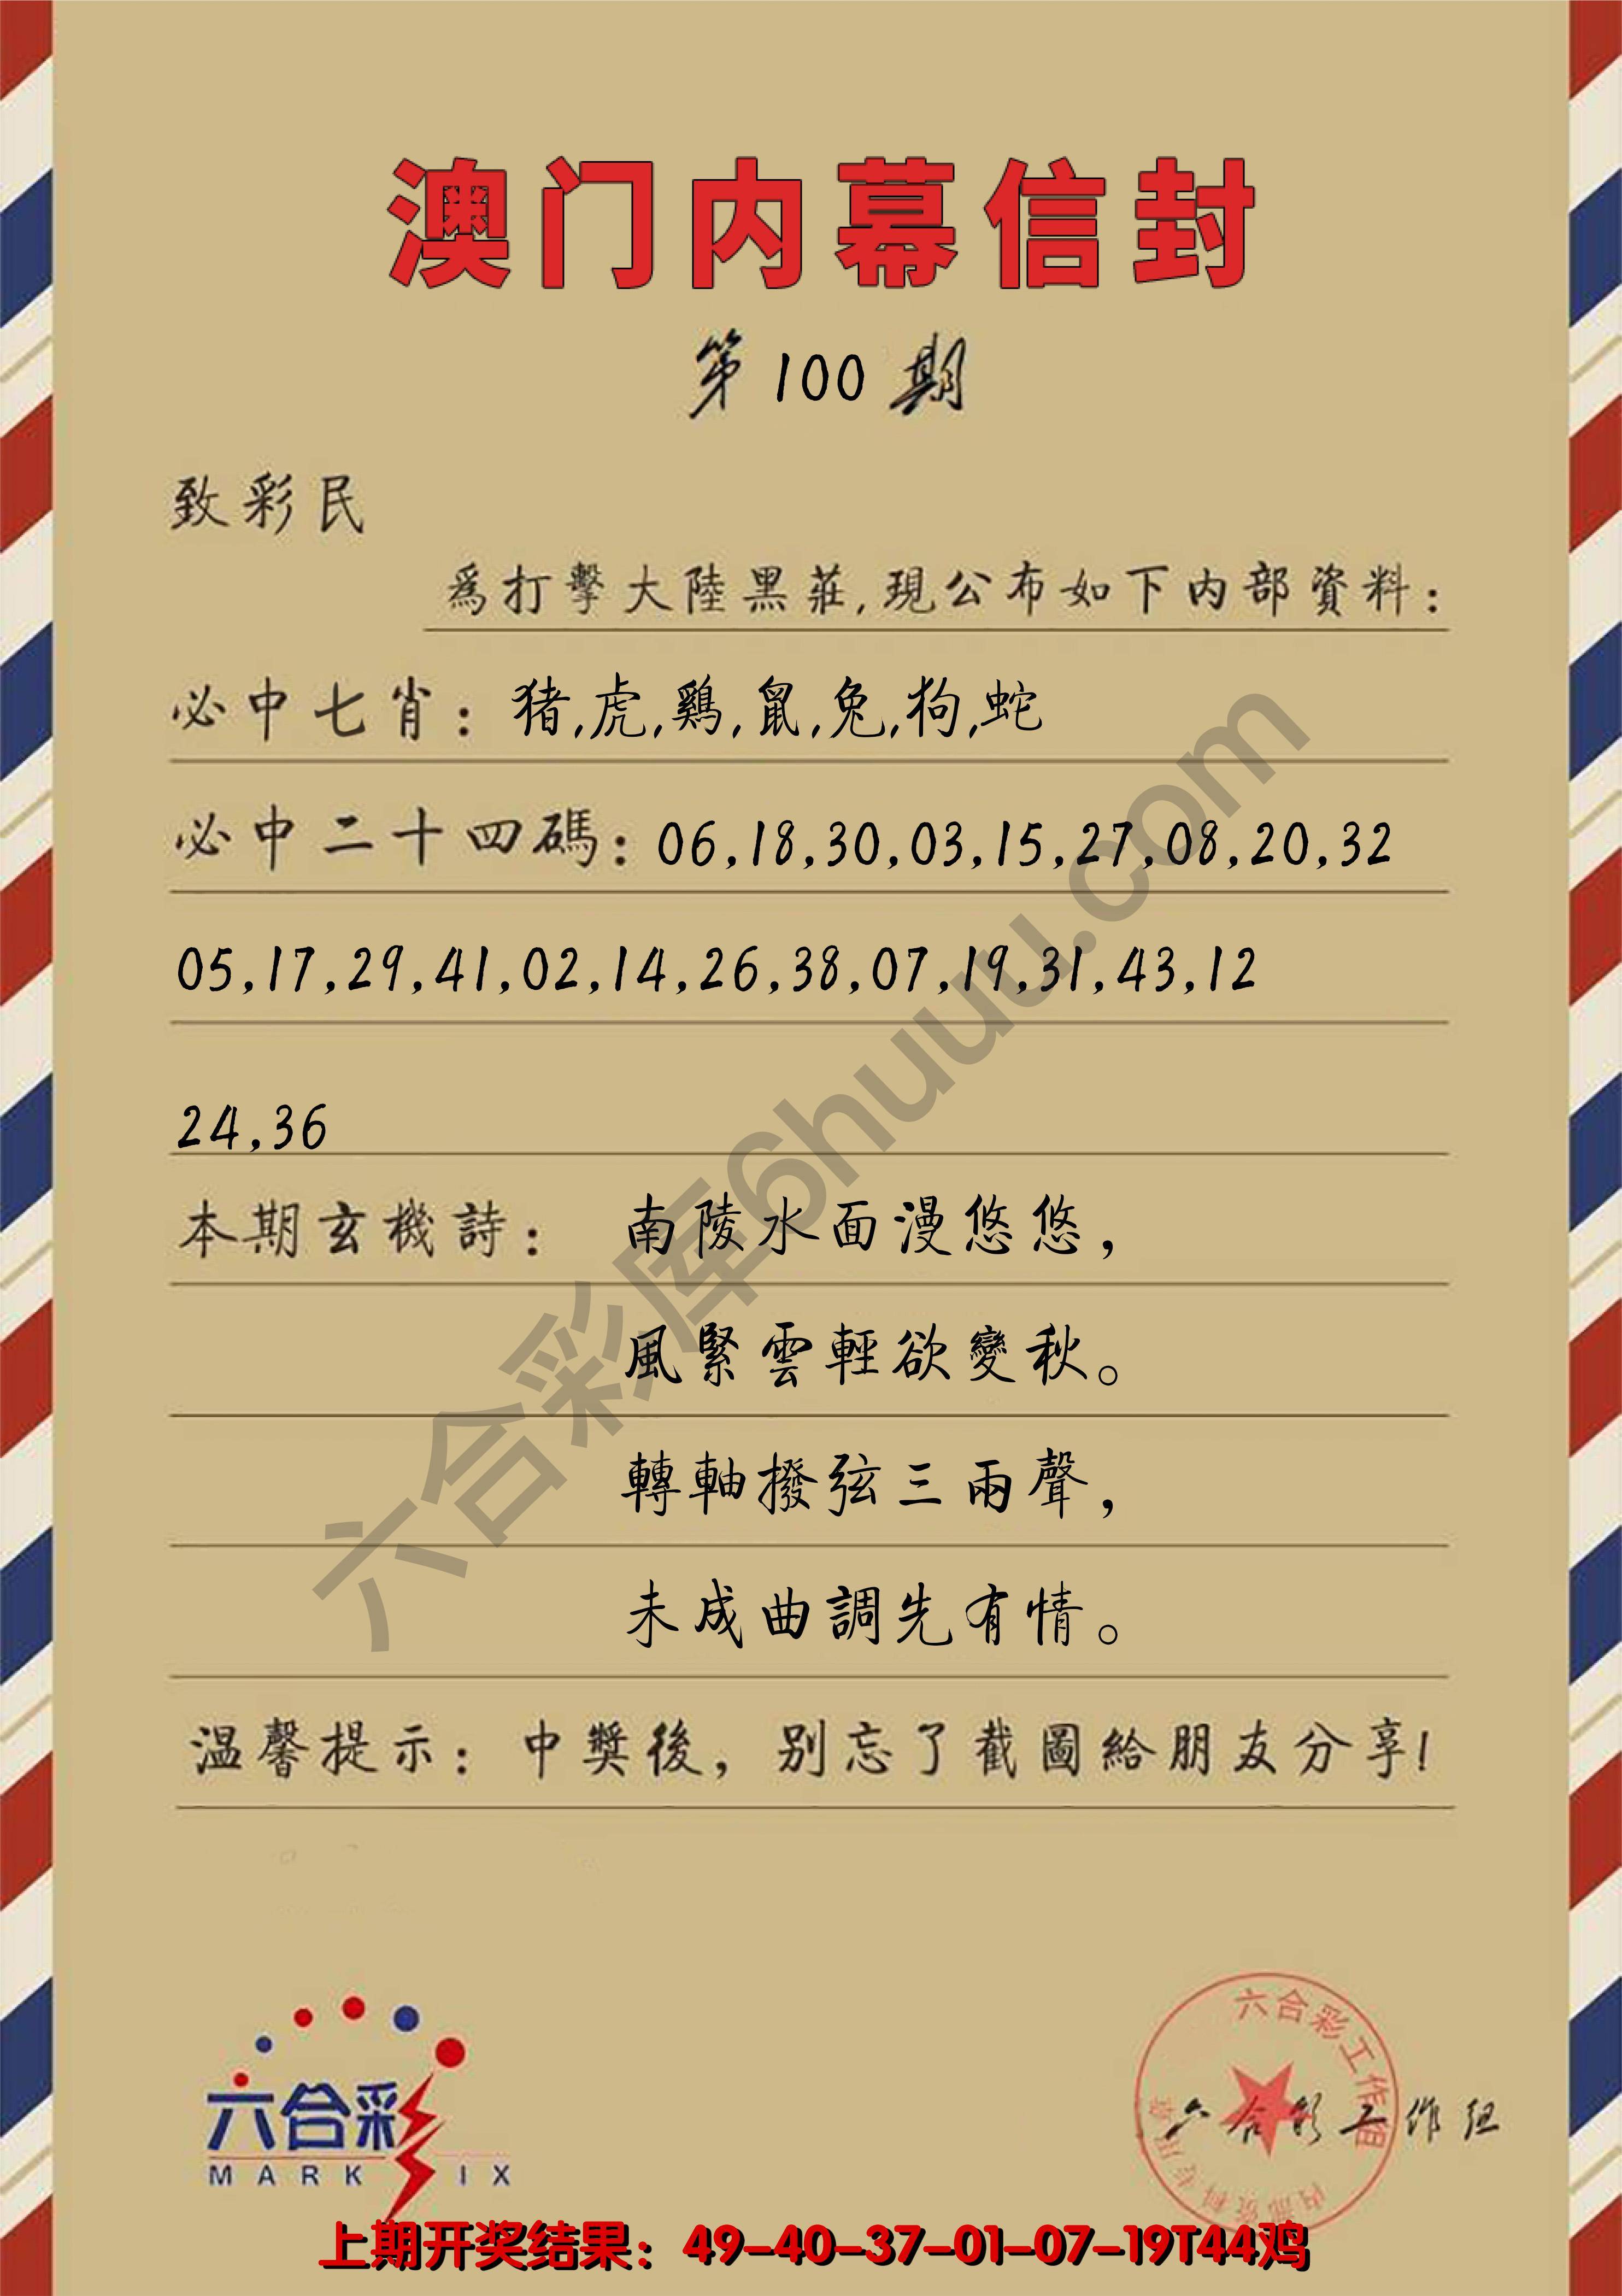 澳门内幕信封
第100期
致彩民
爲打擊大陸黑莊,現公布如下内部資料:
必中七肖: 猪,虎,鷄,鼠,兔,狗,蛇
必中二十四碼: 06,18,30,03,15,27,08,20,32
05,17,29,41,02,14,26,38,07,19,31,43,12
24,36
本期玄機詩: 南陵水面漫悠悠,
風緊雲輕欲變秋。
轉軸撥弦三兩聲,
未成曲調先有情。
温馨提示: 中獎後, 别忘了截圖給朋友分享!
六合彩库6huuu.com
六合彩
MARK SIX
六合彩工作组
内部资料专用章
六合彩工作组
上期开奖结果: 49-40-37-01-07-19T44鸡